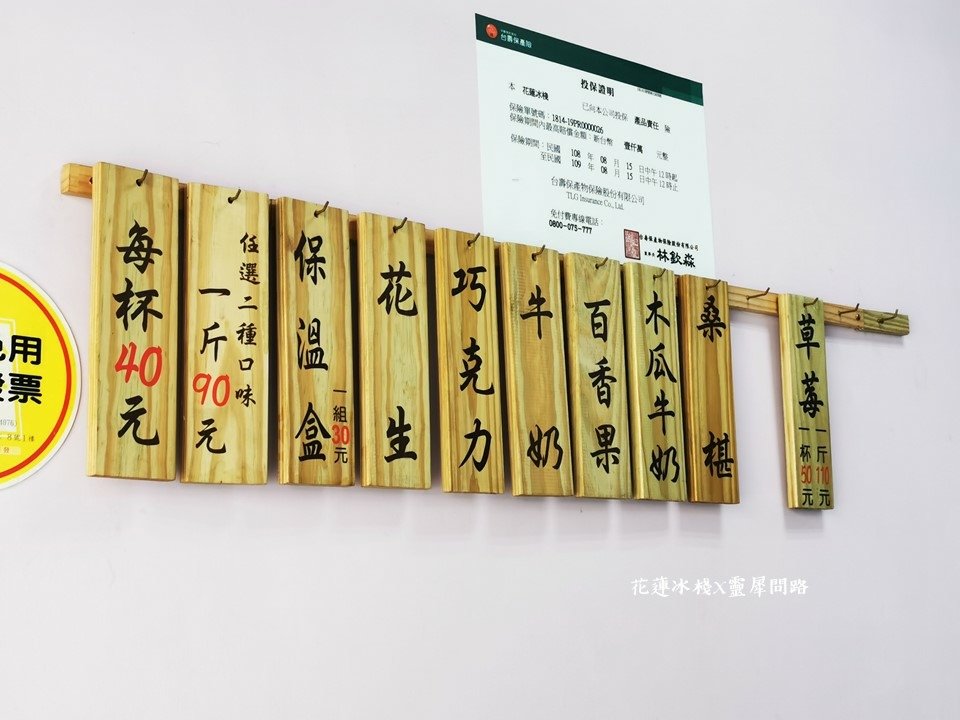 台壽保產險
投保證明
本 花蓮冰棧 已向本公司投保 產品責任 險
保險單號碼：1814-19PR0000026
保險期間內最高賠償金額：新台幣 壹仟萬 元整
保險期間：民國 108 年 08 月 15 日中午12時起
至民國 109 年 08 月 15 日中午12時止
台壽保產物保險股份有限公司
TLG Insurance Co., Ltd.
免付費專線電話：
0800-075-777
台壽保產物保險股份有限公司
董事長 林欽淼
每杯40元
任選二種口味
一斤90元
保溫盒
一組30元
花生
巧克力
牛奶
百香果
木瓜牛奶
桑椹
草莓
一斤110元
一杯50元
用
票
花蓮冰棧X靈犀問路